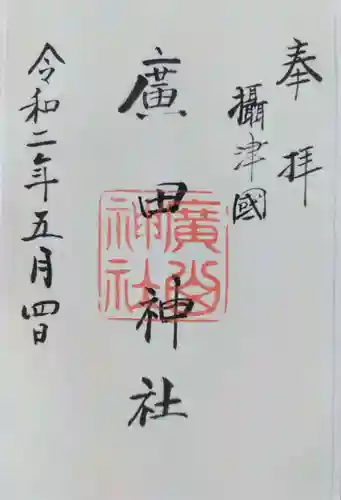 奉拝
攝津國
廣田神社
廣田神社
令和二年五月四日